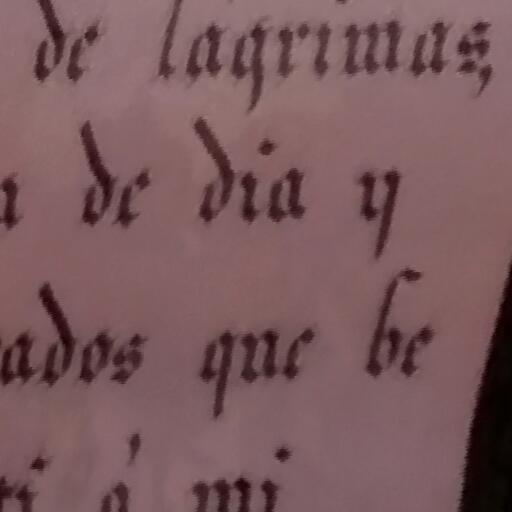 de lagrimas,
de dia y
ados que he
ti á mi